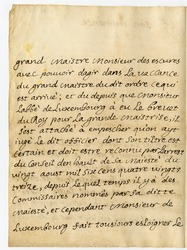 grand Maistre Monsieur des escures
avec pouvoir dagir dans La vaccance
du grand maitre du dit ordre cequi
est arrivé; et du depuis que Monsieur
Labbé de Luxembourg à eu Le brevet
du Roy pour La grande maistrise, il
sest attaché à empescher quion ayt
jugé Le dit officier dont son tiltre est
certain et doit estre reconnu par Larrest
du Conseil den hault de sa Maiesté du
vingt aoust mil six cens quatre vingts
treize, depuis Le quel temps il y a des
Commissaires nommés par sa ditte
maiesté, et Cependant Monsieur de
Luxembourg fait tousiours esloigner Le